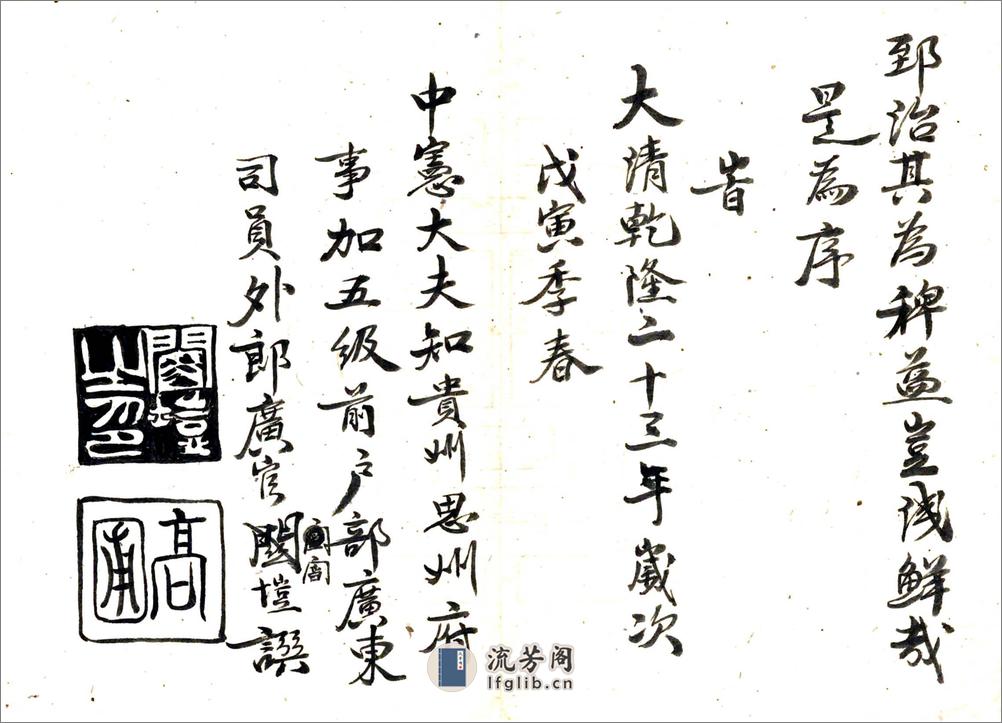 郅治其為稗益豈淺鮮哉
是為序
旹
大清乾隆二十三年歲次
戊寅季春
中憲大夫知貴州思州府
事加五級前户部廣東
司員外郎廣官塏譔
塏
之印
高
甫
流芳阁
lfglib.cn